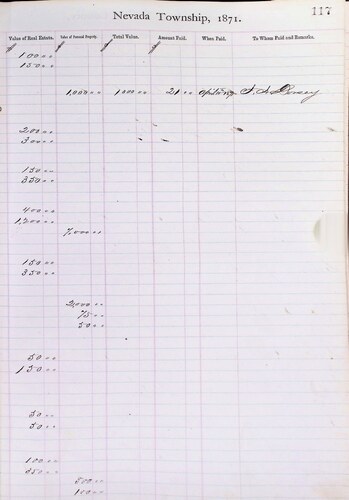 117
Nevada Township, 1871.
Value of Real Estate. Value of Personal Property. Total Value. Amount Paid. When Paid. To Whom Paid and Remarks.
100 00
150 00
1,000 00 1000 00 21 00
200 00
300 00
150 00
350 00
400 00
1,200 00
7,000 00
150 00
350 00
2,000 00
75 00
50 00
50 00
150 00
50 00
50 00
100 00
650 00
500 00
100 00